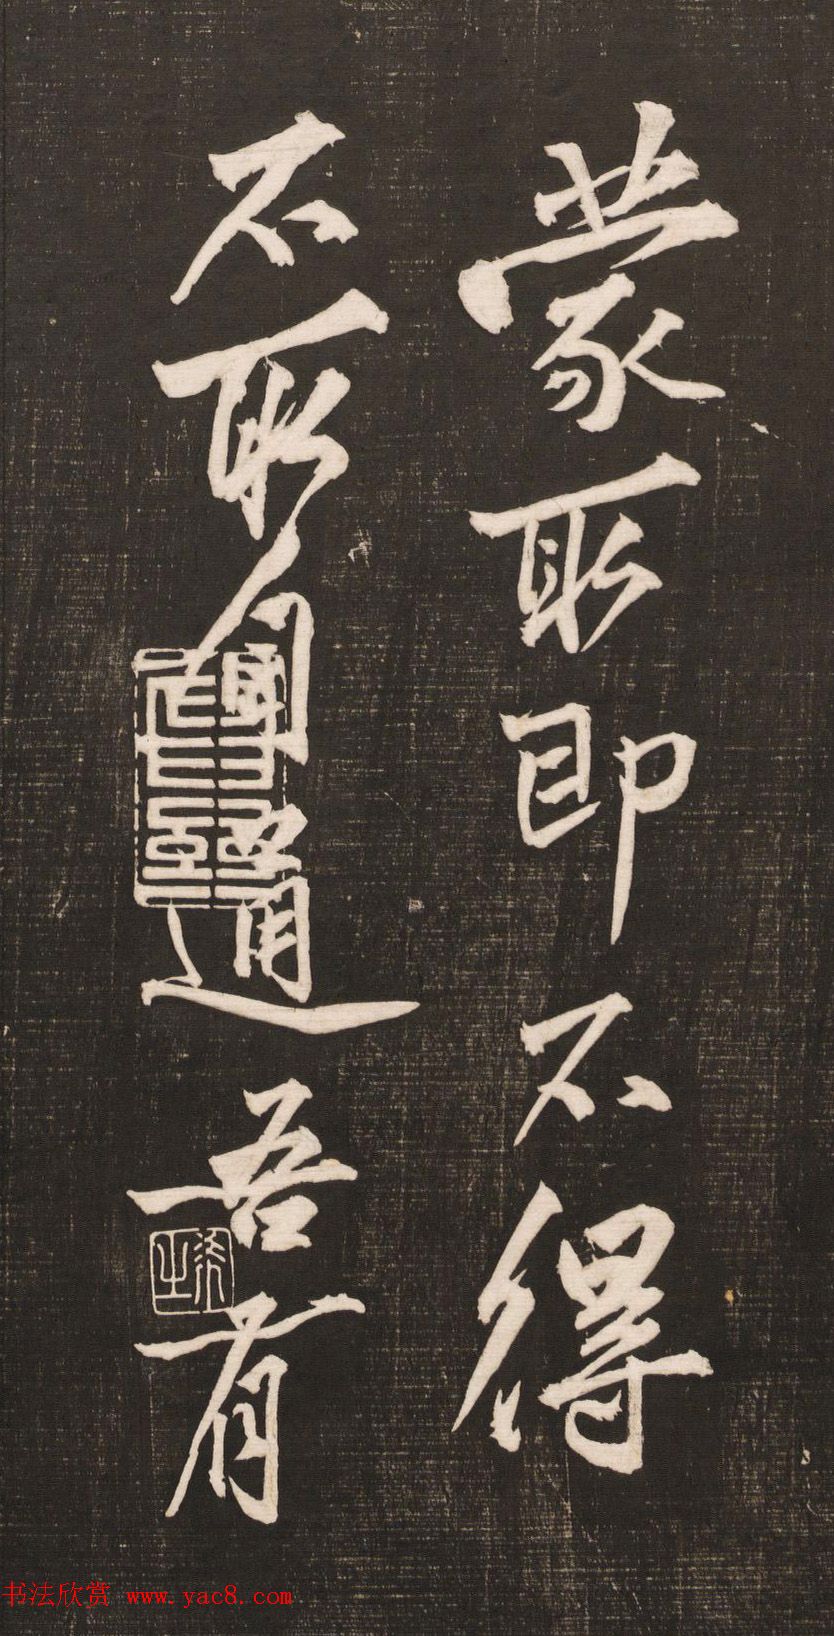 蒙取即不得
不取自通吾有
书法欣赏 www.yac8.com